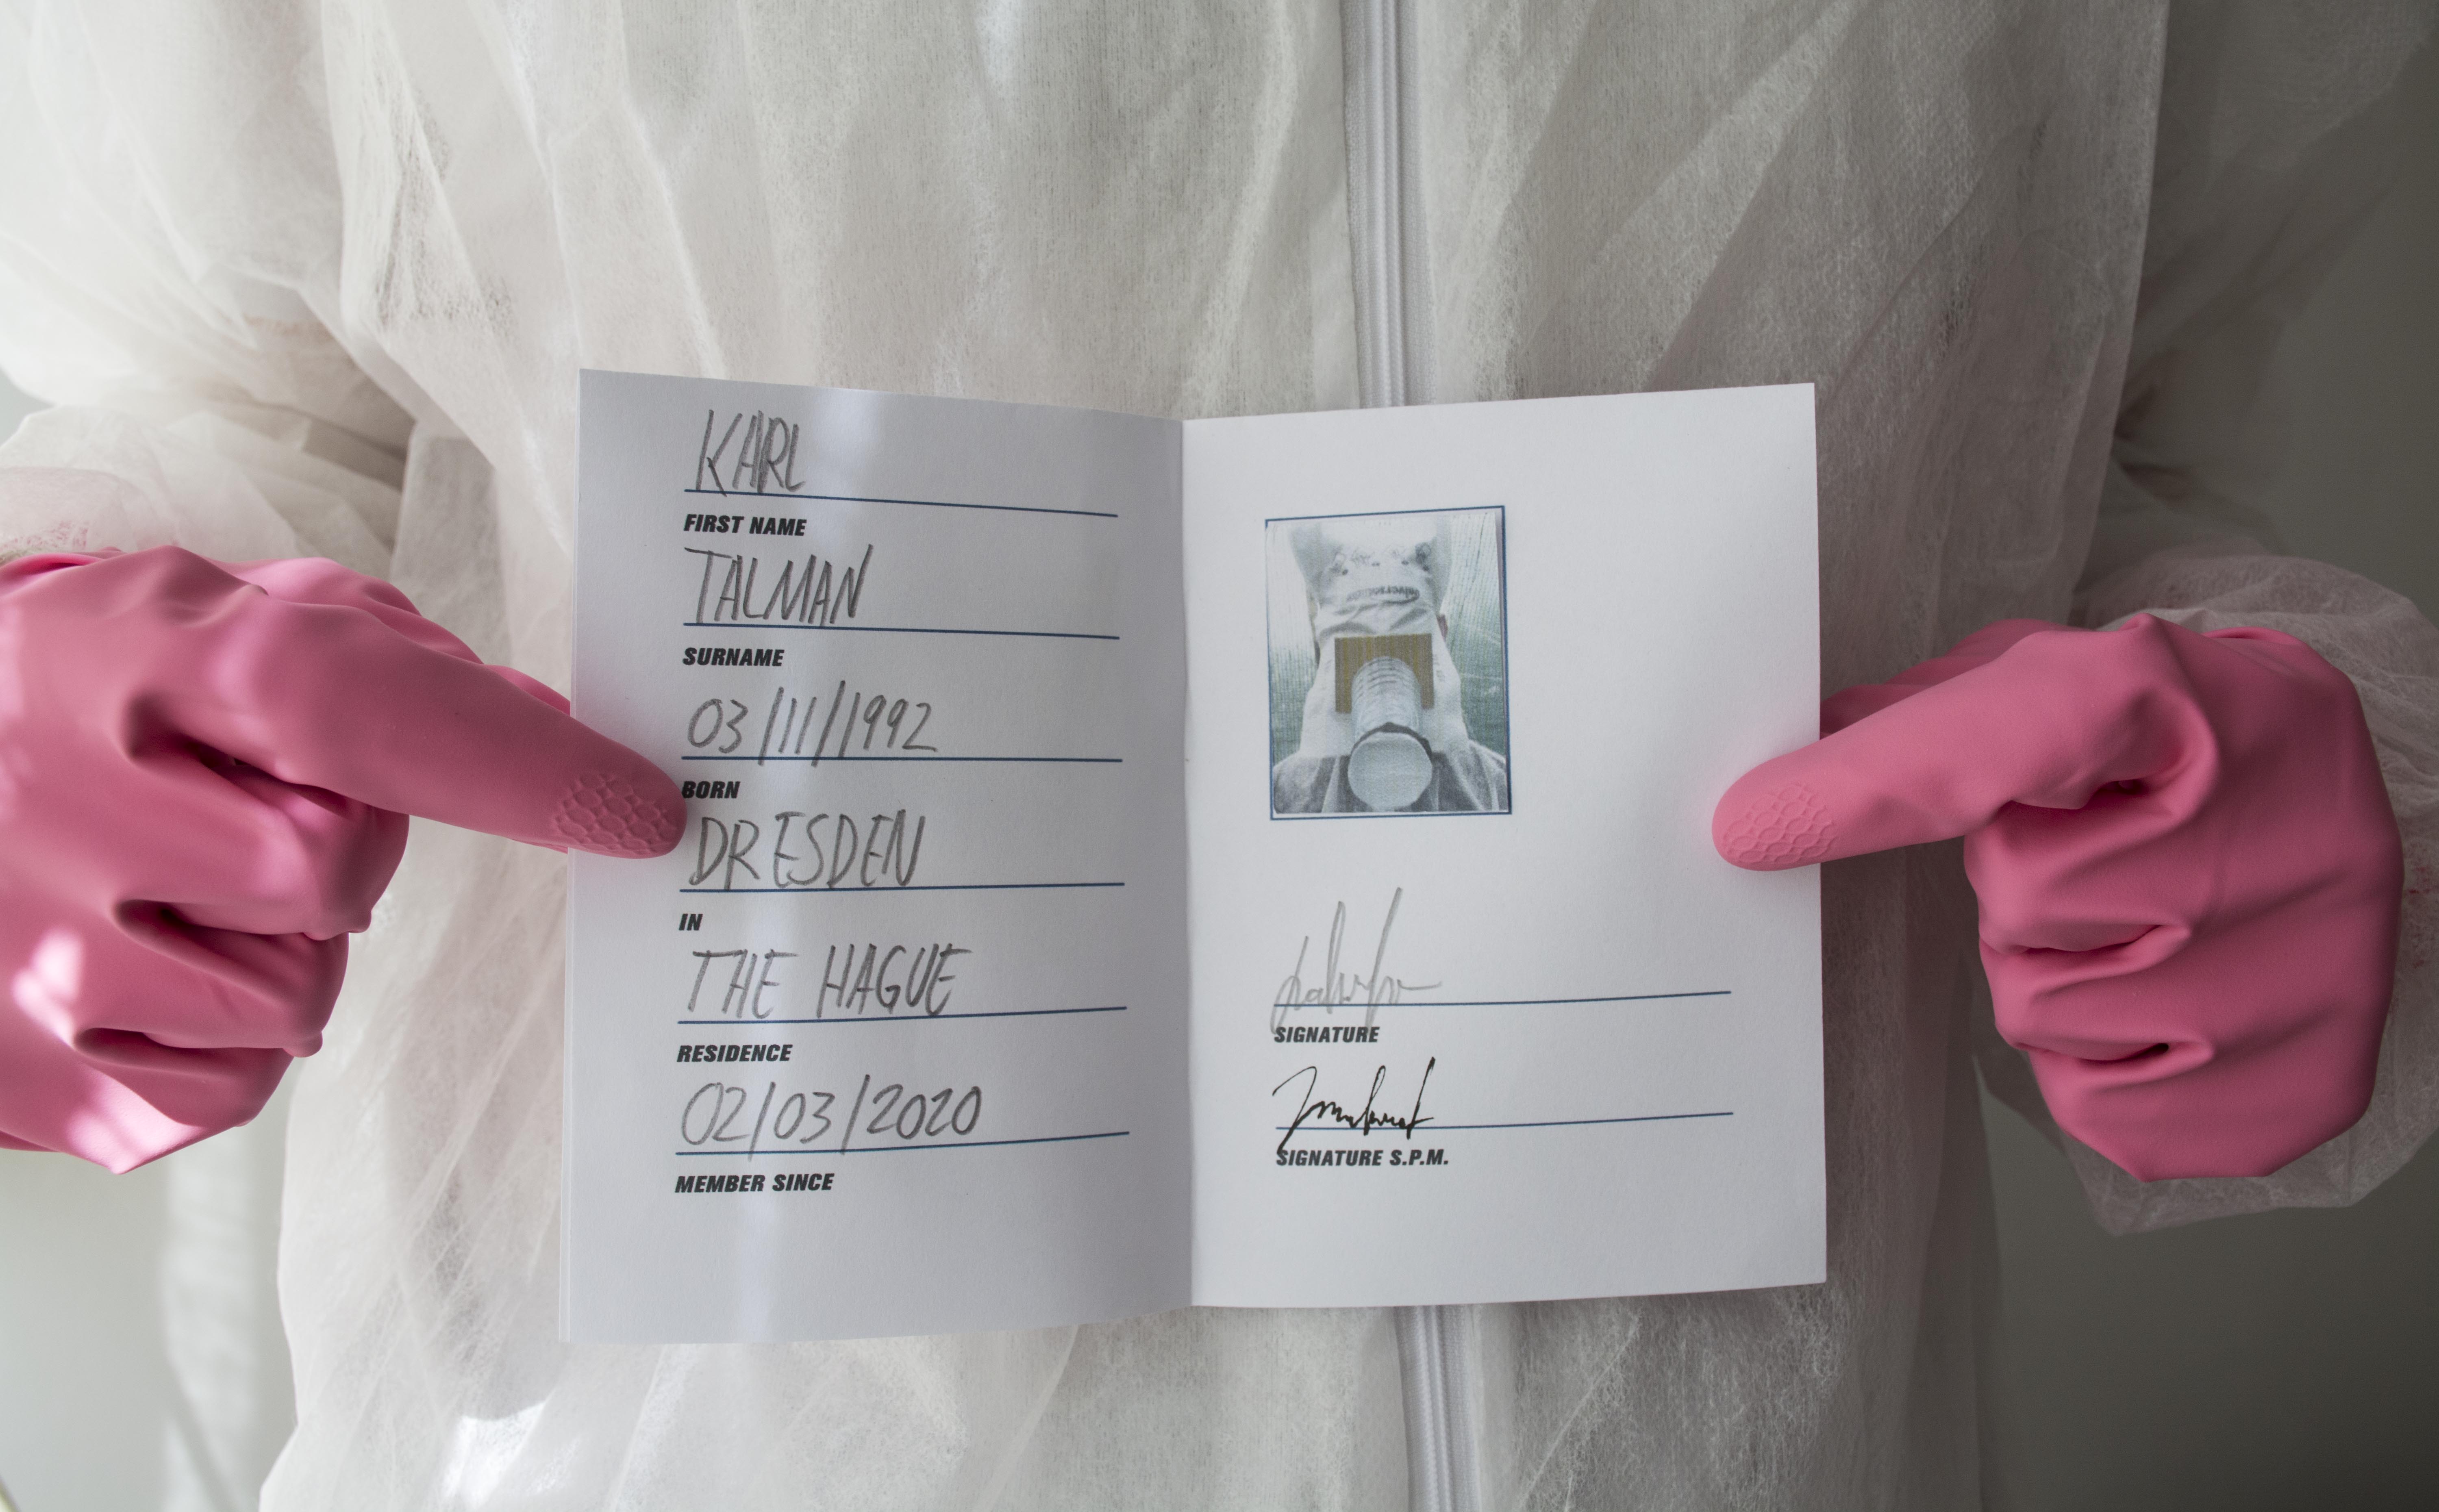 KARL
FIRST NAME
TALMAN
SURNAME
03/11/1992
BORN
DRESDEN
IN
THE HAGUE
RESIDENCE
02/03/2020
MEMBER SINCE
SIGNATURE
SIGNATURE S.P.M.